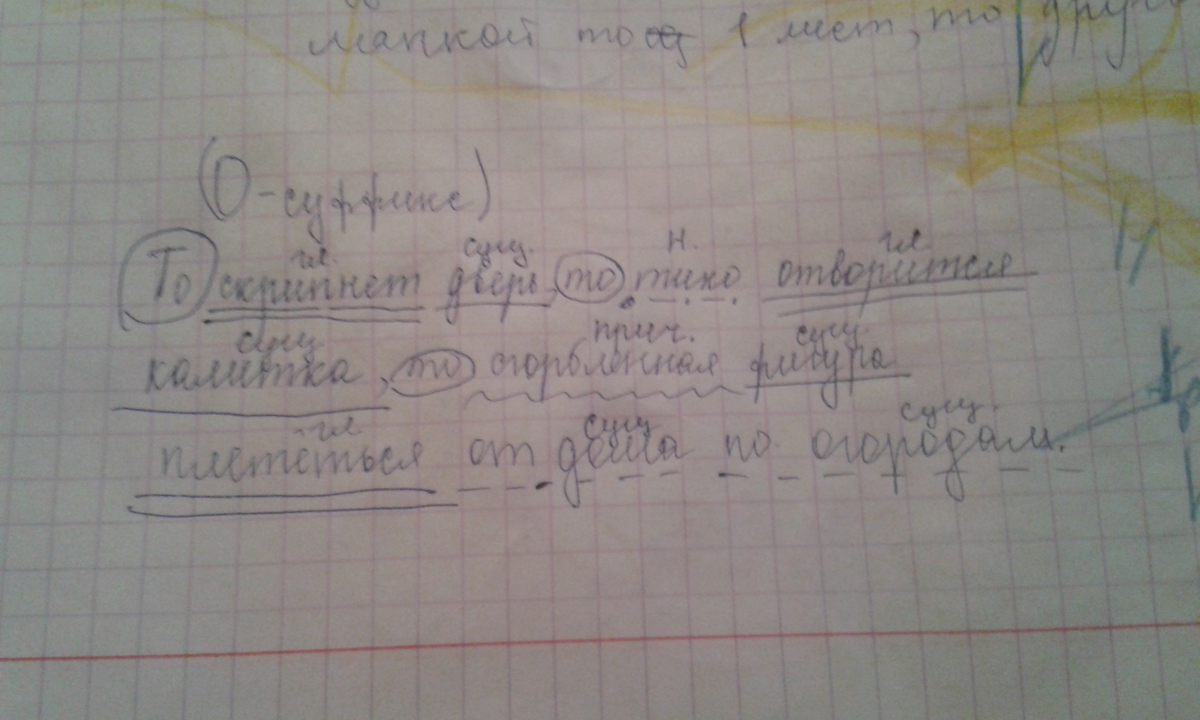 лапкой то 1 лист, то друго
(О-суффикс)
гл. сущ. н. гл.
То скрипнет дверь, то тихо отворится
сущ прич. сущ.
калитка, то сгорбленная фигура
гл сущ сущ.
плететься от дома по огородам.